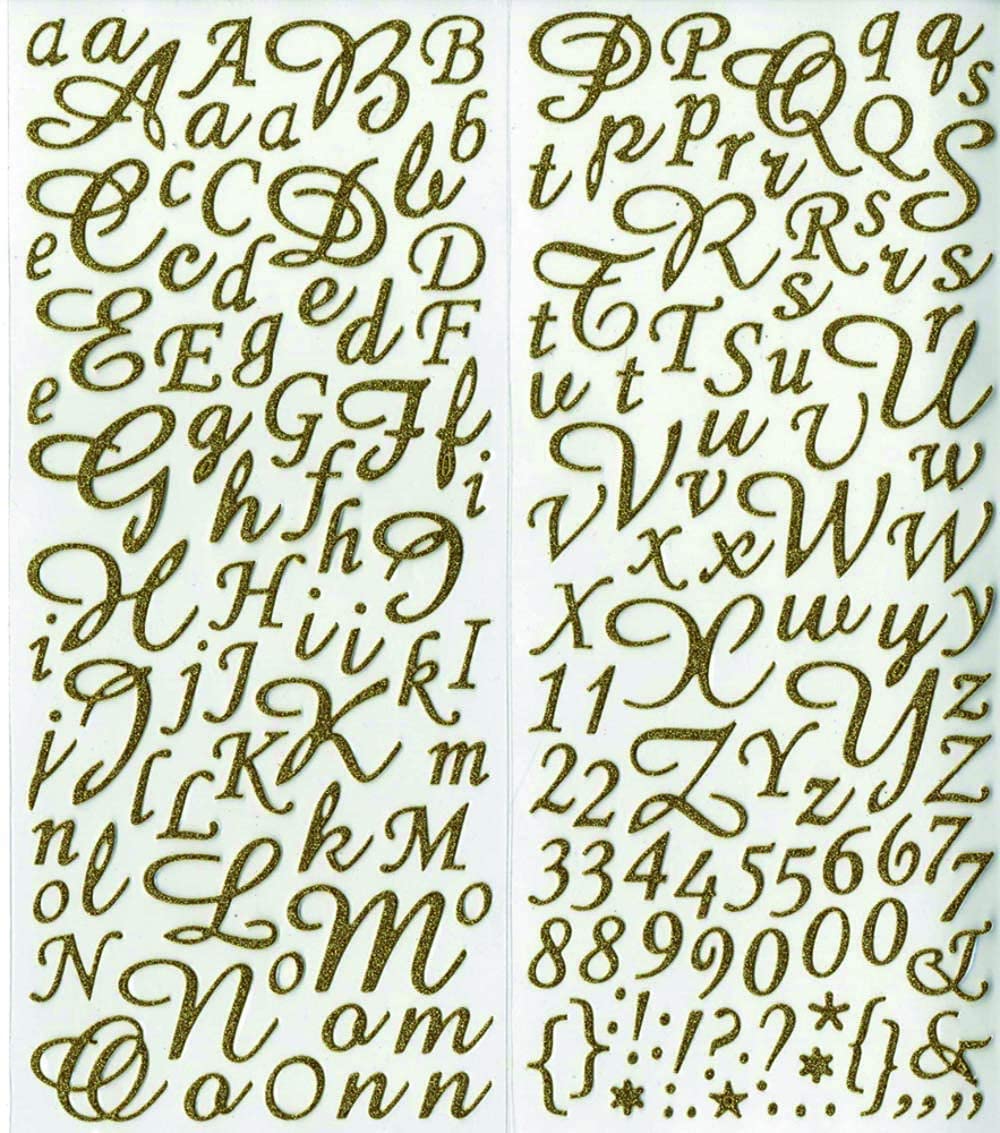 a a A A B B
a a b
C c C D l b
e c d e D
E E g d F
e g G F f
G h f i
H H h I
i i i k I
j J j J K
l K m
l L k M
n l L M o
o
N N o
o m
O o O n n
P P Q q q s
t p p r r Q S
R R s
T s r s
t T S u r U
u t u U
V v w
v x x W W
X X u y y
1 1 Y z
2 2 Z Y z Z
3 3 4 4 5 5 6 6 7 7
8 8 9 9 0 0 0 &
{ } : ! : ! ? . ? * { } &
* : . * : . . . , , , ,